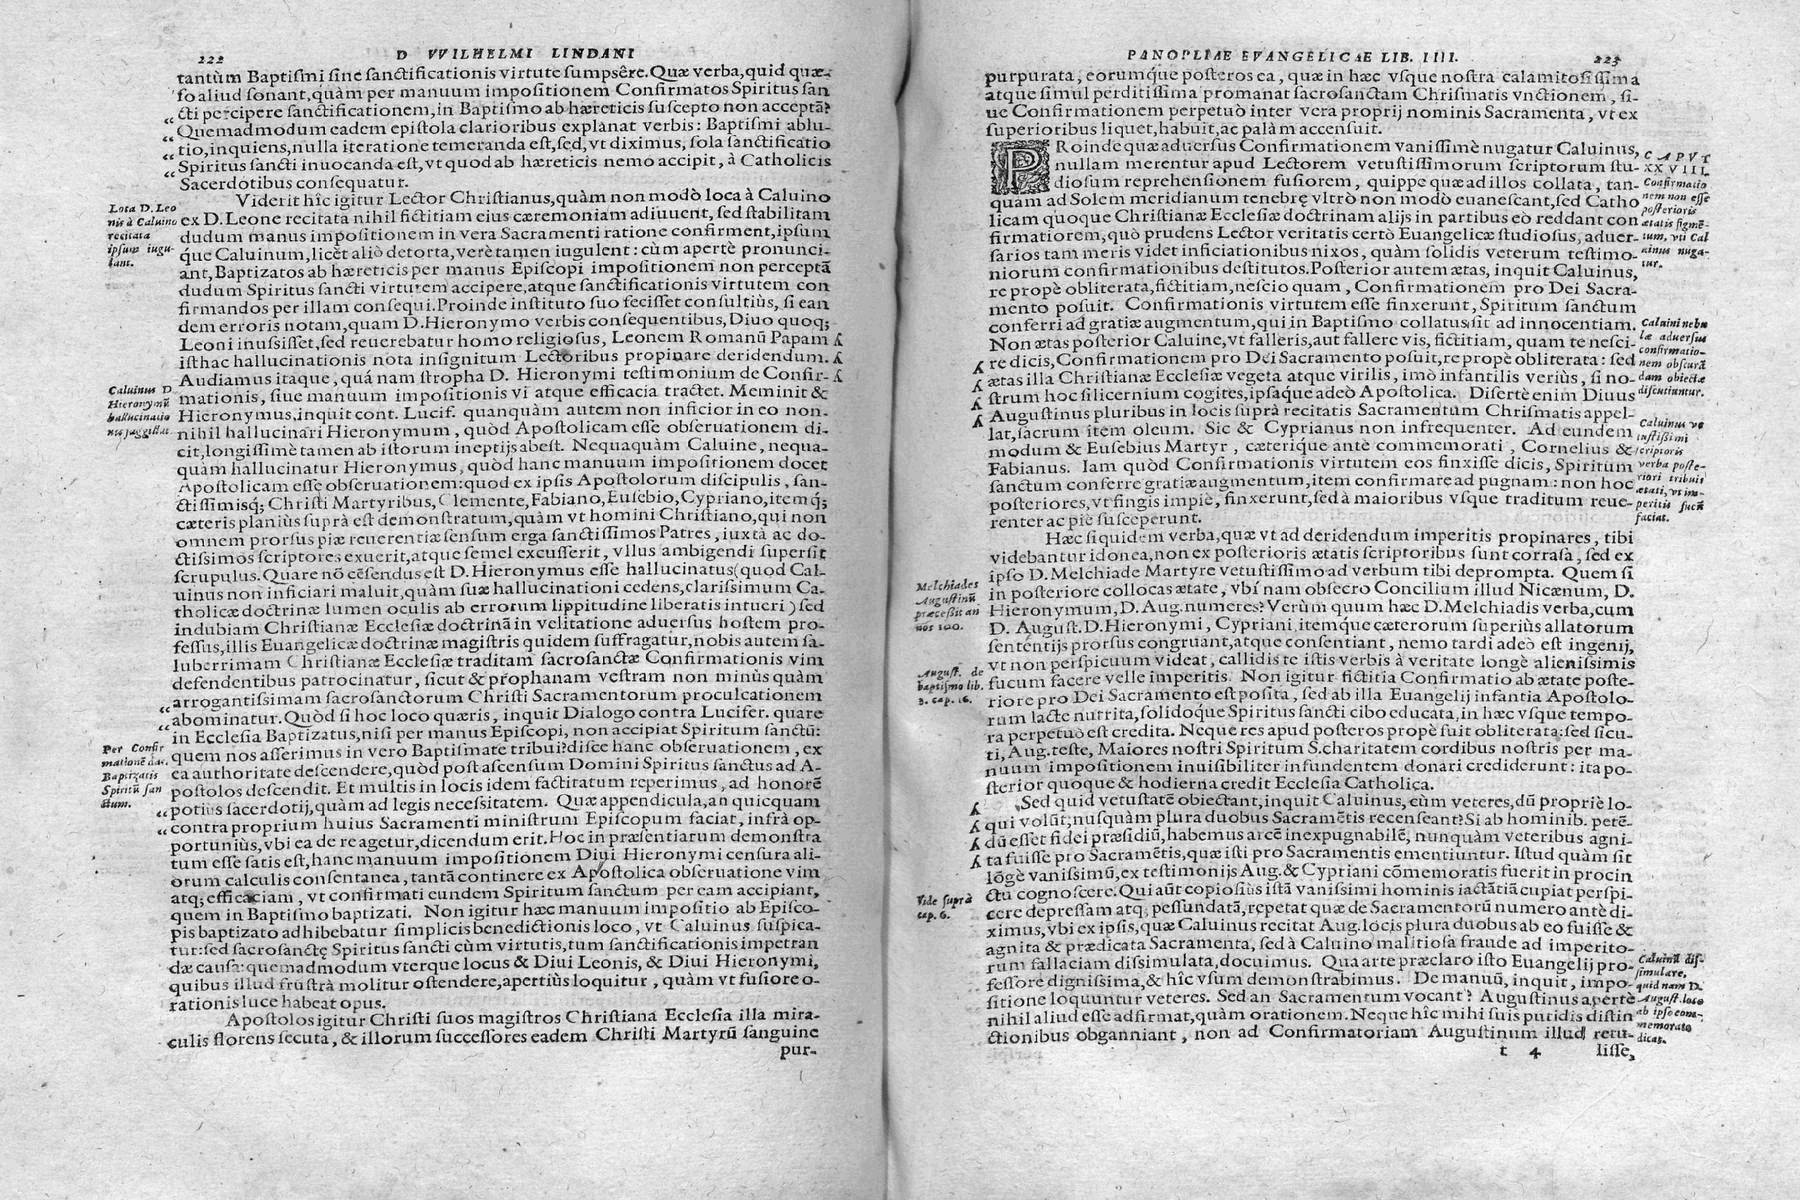 222
D VVILHELMI LINDANI
tantùm Baptiſmi ſine ſanctificationis virtute ſumpsêre. Quæ verba, quid quæ-
ſo aliud ſonant, quàm per manuum impoſitionem Confirmatos Spiritus ſan
cti percipere ſanctificationem, in Baptiſmo ab hæreticis ſuſcepto non acceptã?
Quemadmodum eadem epiſtola clarioribus explanat verbis: Baptiſmi ablu-
tio, inquiens, nulla iteratione temeranda eſt, ſed, vt diximus, ſola ſanctificatio
Spiritus ſancti inuocanda eſt, vt quod ab hæreticis nemo accipit, à Catholicis
Sacerdotibus conſequatur.
Viderit hîc igitur Lector Chriſtianus, quàm non modò loca à Caluino
ex D. Leone recitata nihil fictitiam eius cæremoniam adiuuent, ſed ſtabilitam
dudum manus impoſitionem in vera Sacramenti ratione confirment, ipſum
q́ue Caluinum, licèt aliò detorta, verè tamen iugulent: cùm apertè pronunci-
ant, Baptizatos ab hæreticis per manus Epiſcopi impoſitionem non perceptã
dudum Spiritus ſancti virtutem accipere, atque ſanctificationis virtutem con
firmandos per illam conſequi. Proinde inſtituto ſuo feciſſet conſultiùs, ſi ean
dem erroris notam, quam D. Hieronymo verbis conſequentibus, Diuo quoq;
Leoni inuſsiſſet, ſed reuerebatur homo religioſus, Leonem Romanũ Papam
iſthac hallucinationis nota inſignitum Lectoribus propinare deridendum.
Audiamus itaque, quá nam ſtropha D. Hieronymi teſtimonium de Confir-
mationis, ſiue manuum impoſitionis vi atque efficacia tractet. Meminit &
Hieronymus, inquit cont. Lucif. quanquàm autem non inficior in eo non-
nihil hallucinari Hieronymum, quòd Apoſtolicam eſſe obſeruationem di-
cit, longiſsimè tamen ab iſtorum ineptijs abeſt. Nequaquàm Caluine, nequa-
quàm hallucinatur Hieronymus, quòd hanc manuum impoſitionem docet
Apoſtolicam eſſe obſeruationem: quod ex ipſis Apoſtolorum diſcipulis, ſan-
ctiſsimisq́; Chriſti Martyribus, Clemente, Fabiano, Euſebio, Cypriano, itemq́;
cæteris planiùs ſuprà eſt demonſtratum, quàm vt homini Chriſtiano, qui non
omnem prorſus piæ reuerentiæ ſenſum erga ſanctiſsimos Patres, iuxtà ac do-
ctiſsimos ſcriptores exuerit, atque ſemel excuſſerit, vllus ambigendi ſuperſit
ſcrupulus. Quare nõ cẽſendus eſt D. Hieronymus eſſe hallucinatus (quod Cal-
uinus non inficiari maluit, quàm ſuæ hallucinationi cedens, clariſsimum Ca-
tholicæ doctrinæ lumen oculis ab errorum lippitudine liberatis intueri) ſed
indubiam Chriſtianæ Eccleſiæ doctrinã in velitatione aduerſus hoſtem pro-
feſſus, illis Euangelicæ doctrinæ magiſtris quidem ſuffragatur, nobis autem ſa-
luberrimam Chriſtianæ Eccleſiæ traditam ſacroſanctæ Confirmationis vim
defendentibus patrocinatur, ſicut & prophanam veſtram non minùs quàm
arrogantiſsimam ſacroſanctorum Chriſti Sacramentorum proculcationem
abominatur. Quòd ſi hoc loco quæris, inquit Dialogo contra Lucifer. quare
in Eccleſia Baptizatus, niſi per manus Epiſcopi, non accipiat Spiritum ſanctũ:
quem nos aſſerimus in vero Baptiſmate tribui? diſce hanc obſeruationem, ex
ea authoritate deſcendere, quòd poſt aſcenſum Domini Spiritus ſanctus ad A-
poſtolos deſcendit. Et multis in locis idem factitatum reperimus, ad honorẽ
potiùs ſacerdotij, quàm ad legis neceſsitatem. Quæ appendicula, an quicquam
contra proprium huius Sacramenti miniſtrum Epiſcopum faciat, infrà op-
portuniùs, vbi ea de re agetur, dicendum erit. Hoc in præſentiarum demonſtra
tum eſſe ſatis eſt, hanc manuum impoſitionem Diui Hieronymi cenſura ali-
orum calculis conſentanea, tantã continere ex Apoſtolica obſeruatione vim
atq; efficaciam, vt confirmati eundem Spiritum ſanctum per eam accipiant,
quem in Baptiſmo baptizati. Non igitur hæc manuum impoſitio ab Epiſco-
pis baptizato adhibebatur ſimplicis benedictionis loco, vt Caluinus ſuſpica-
tur: ſed ſacroſanctę Spiritus ſancti cùm virtutis, tum ſanctificationis impetran
dæ cauſa: quemadmodum vterque locus & Diui Leonis, & Diui Hieronymi,
quibus illud fruſtrà molitur oſtendere, apertiùs loquitur, quàm vt fuſiore o-
rationis luce habeat opus.
Apoſtolos igitur Chriſti ſuos magiſtros Chriſtiana Eccleſia illa mira-
culis florens ſecuta, & illorum ſucceſſores eadem Chriſti Martyrũ ſanguine
pur-
Lota D. Leo
nis à Caluino
recitata
ipſum iugu-
lant.
Caluinus D.
Hieronymũ
hallucinatio
nis ſuggillat.
Per Confir
mationẽ dat.
Baptizatis
Spiritũ ſan
ctum.
PANOPLIAE EVANGELICAE LIB. IIII.
223
purpurata, eorumq́ue poſteros ea, quæ in hæc vſque noſtra calamitoſiſsima
atque ſimul perditiſsima promanat ſacroſanctam Chriſmatis vnctionem, ſi-
ue Confirmationem perpetuò inter vera proprij nominis Sacramenta, vt ex
ſuperioribus liquet, habuit, ac palàm accenſuit.
PRoinde quæ aduerſus Confirmationem vaniſsimè nugatur Caluinus,
nullam merentur apud Lectorem vetuſtiſsimorum ſcriptorum ſtu-
dioſum reprehenſionem fuſiorem, quippe quæ ad illos collata, tan-
quàm ad Solem meridianum tenebrę vltrò non modò euaneſcant, ſed Catho
licam quoque Chriſtianæ Eccleſiæ doctrinam alijs in partibus eò reddant con
firmatiorem, quò prudens Lector veritatis certò Euangelicæ ſtudioſus, aduer-
ſarios tam meris videt inficiationibus nixos, quàm ſolidis veterum teſtimo-
niorum confirmationibus deſtitutos. Poſterior autem ætas, inquit Caluinus,
re propè obliterata, fictitiam, neſcio quam, Confirmationem pro Dei Sacra-
mento poſuit. Confirmationis virtutem eſſe finxerunt, Spiritum ſanctum
conferri ad gratiæ augmentum, qui in Baptiſmo collatus ſit ad innocentiam.
Non ætas poſterior Caluine, vt falleris, aut fallere vis, fictitiam, quam te neſci-
re dicis, Confirmationem pro Dei Sacramento poſuit, re propè obliterata: ſed
ætas illa Chriſtianæ Eccleſiæ vegeta atque virilis, imò infantilis veriùs, ſi no-
ſtrum hoc ſilicernium cogites, ipſaq́ue adeò Apoſtolica. Diſertè enim Diuus
Auguſtinus pluribus in locis ſuprà recitatis Sacramentum Chriſmatis appel-
lat, ſacrum item oleum. Sic & Cyprianus non infrequenter. Ad eundem
modum & Euſebius Martyr, cæteriq́ue antè commemorati, Cornelius &
Fabianus. Iam quòd Confirmationis virtutem eos finxiſſe dicis, Spiritum
ſanctum conferre gratiæ augmentum, item confirmare ad pugnam: non hoc
poſteriores, vt fingis impiè, finxerunt, ſed à maioribus vſque traditum reue-
renter ac piè ſuſceperunt.
Hæc ſiquidem verba, quæ vt ad deridendum imperitis propinares, tibi
videbantur idonea, non ex poſterioris ætatis ſcriptoribus ſunt corraſa, ſed ex
ipſo D. Melchiade Martyre vetuſtiſsimo ad verbum tibi deprompta. Quem ſi
in poſteriore collocas ætate, vbi nam obſecro Concilium illud Nicænum, D.
Hieronymum, D. Aug. numeres? Verùm quum hæc D. Melchiadis verba, cum
D. Auguſt. D. Hieronymi, Cypriani, itemq́ue cæterorum ſuperiùs allatorum
ſententijs prorſus congruant, atque conſentiant, nemo tardi adeò eſt ingenij,
vt non perſpicuum videat, callidis te iſtis verbis à veritate longè alieniſsimis
fucum facere velle imperitis. Non igitur fictitia Confirmatio ab ætate poſte-
riore pro Dei Sacramento eſt poſita, ſed ab illa Euangelij infantia Apoſtolo-
rum lacte nutrita, ſolidoq́ue Spiritus ſancti cibo educata, in hæc vſque tempo-
ra perpetuò eſt credita. Neque res apud poſteros propè fuit obliterata: ſed ſicu-
ti, Aug. teſte, Maiores noſtri Spiritum S. charitatem cordibus noſtris per ma-
nuum impoſitionem inuiſibiliter infundentem donari crediderunt: ita po-
ſterior quoque & hodierna credit Eccleſia Catholica.
Sed quid vetuſtatẽ obiectant, inquit Caluinus, cùm veteres, dũ propriè lo-
qui volũt, nuſquàm plura duobus Sacramẽtis recenſeant? Si ab hominib. petẽ-
dũ eſſet fidei præſidiũ, habemus arcẽ inexpugnabilẽ, nunquàm veteribus agni-
ta fuiſſe pro Sacramẽtis, quæ iſti pro Sacramentis ementiuntur. Iſtud quàm ſit
lõgè vaniſsimũ, ex teſtimonijs Aug. & Cypriani cõmemoratis fuerit in procin
ctu cognoſcere. Qui aũt copioſiùs iſtã vaniſsimi hominis iactãtiã cupiat perſpi-
cere depreſſam atq; peſſundatã, repetat quæ de Sacramentorũ numero antè di-
ximus, vbi ex ipſis, quæ Caluinus recitat Aug. locis plura duobus ab eo fuiſſe &
agnita & prædicata Sacramenta, ſed à Caluino malitioſa fraude ad imperito-
rum fallaciam diſsimulata, docuimus. Qua arte præclaro iſto Euangelij pro-
feſſore digniſsima, & hîc vſum demonſtrabimus. De manuũ, inquit, impo-
ſitione loquuntur veteres. Sed an Sacramentum vocant? Auguſtinus apertè
nihil aliud eſſe adfirmat, quàm orationem. Neque hîc mihi ſuis putidis diſtin
ctionibus obganniant, non ad Confirmatoriam Auguſtinum illud retu-
t 4
liſſe,
CAPVT
XXVIII.
Confirmatio
nem non eſſe
poſterioris
ætatis figmẽ-
tum, vti Cal
uinus nuga-
tur.
Caluini nebu
læ aduerſus
confirmatio-
nem obſcurã
dam obiectæ
diſcutiuntur.
Caluinus ve
tuſtiſsimi
ſcriptoris
verba poſte-
riori tribuit
ætati, vt im-
peritis fucũ
faciat.
Melchiades
Auguſtinũ
præceſsit an
nos 100.
Auguſt. de
baptiſmo lib.
3. cap. 16.
Vide ſuprà
cap. 6.
Caluinũ diſ-
ſimulare,
quid nam D.
Auguſt. loco
ab ipſo com-
memorato
dicat.